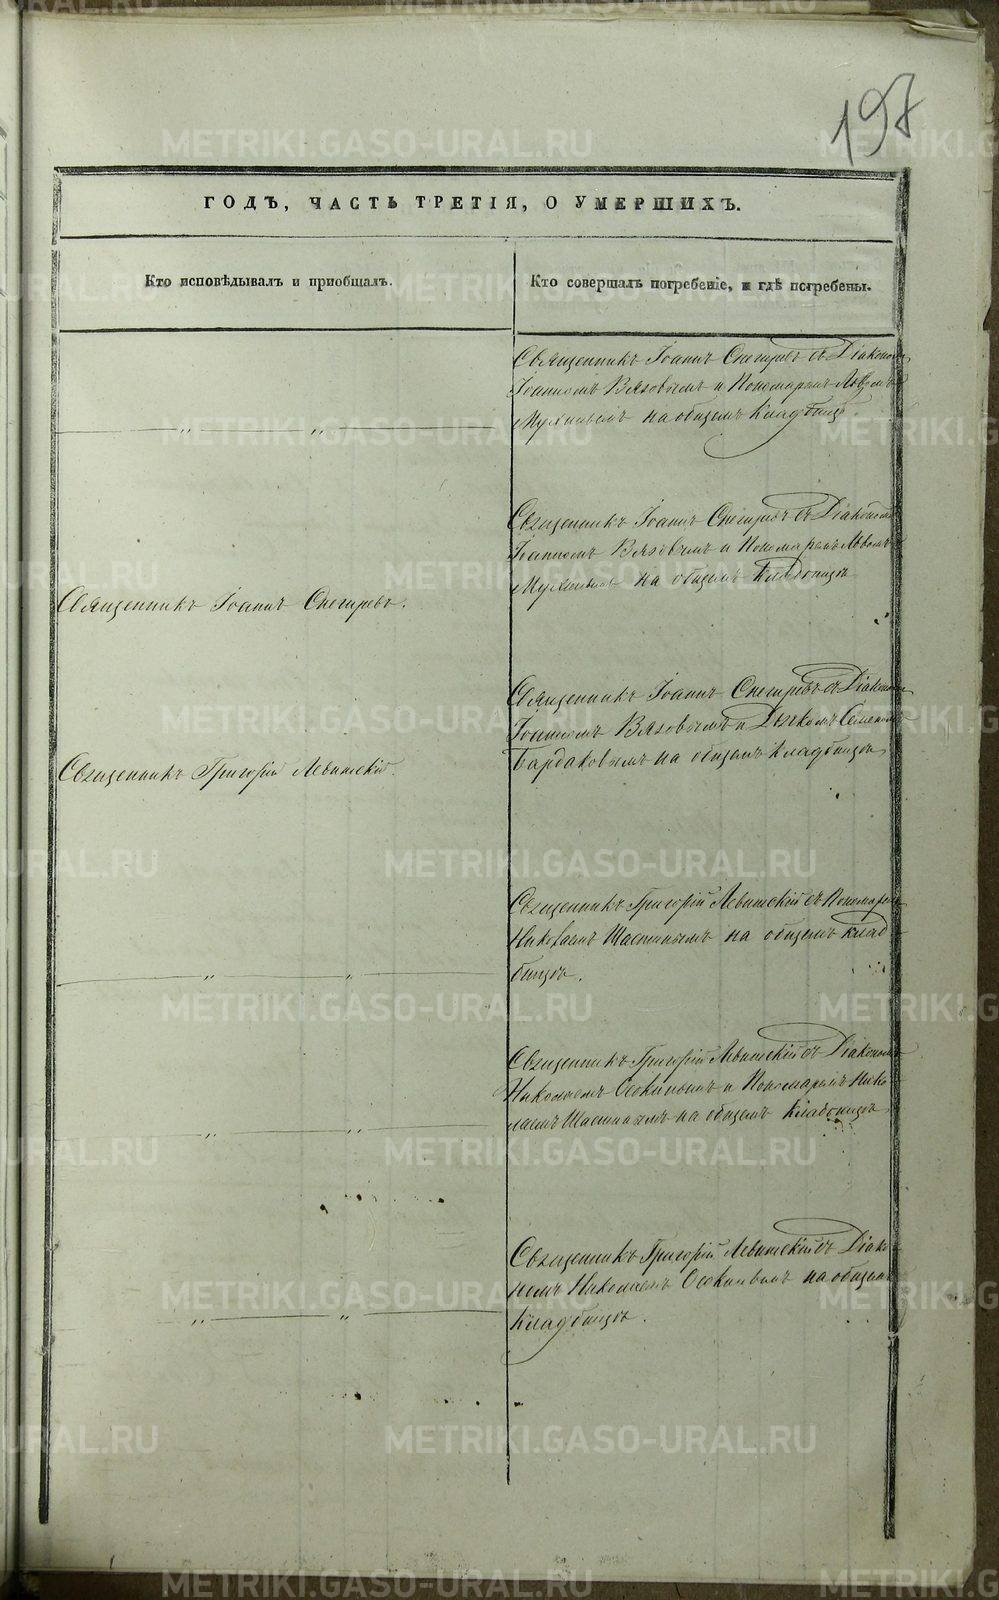 197
ГОДЪ, ЧАСТЬ ТРЕТІЯ, О УМЕРШИХЪ.
Кто исповѣдывалъ и приобщалъ.
Кто совершалъ погребеніе, и гдѣ погребены.
Священникъ Іоаннъ Снегиревъ съ Діакономъ
Іоанномъ Вяховымъ и Пономаремъ Львомъ
на общемъ Кладбищѣ.
Священникъ Іоаннъ Снегиревъ съ Діакономъ
Іоанномъ Вяховымъ и Пономаремъ Львомъ
на общемъ Кладбищѣ
Священникъ Іоаннъ Снегиревъ.
Священникъ Іоаннъ Снегиревъ съ Діакономъ
Іоанномъ Вяховымъ и Дьячкомъ Семеномъ
Бардаковымъ на общемъ Кладбищѣ
Священникъ Григорій Левитскій.
Священникъ Григорій Левитскій съ Пономаремъ
Николаемъ Шастинымъ на общемъ клад-
бищѣ.
Священникъ Григорій Левитскій съ Діакономъ
Николаемъ Осокинымъ и Пономаремъ Нико-
лаемъ Шастинымъ на общемъ Кладбищѣ
Священникъ Григорій Левитскій съ Діако-
номъ Николаемъ Осокинымъ на общемъ
Кладбищѣ.
METRIKI.GASO-URAL.RU